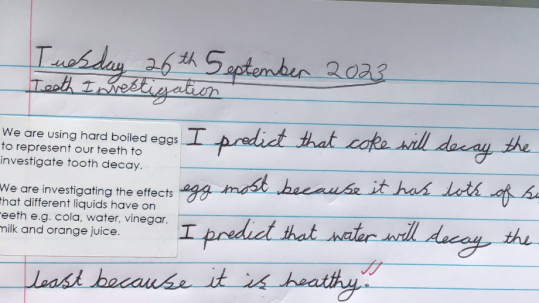 Tuesday 26th September 2023
Teeth Investigation
We are using hard boiled eggs
to represent our teeth to
investigate tooth decay.
We are investigating the effects
that different liquids have on
teeth e.g. cola, water, vinegar,
milk and orange juice.
I predict that coke will decay the
egg most because it has lots of
I predict that water will decay the
least because it is healthy.